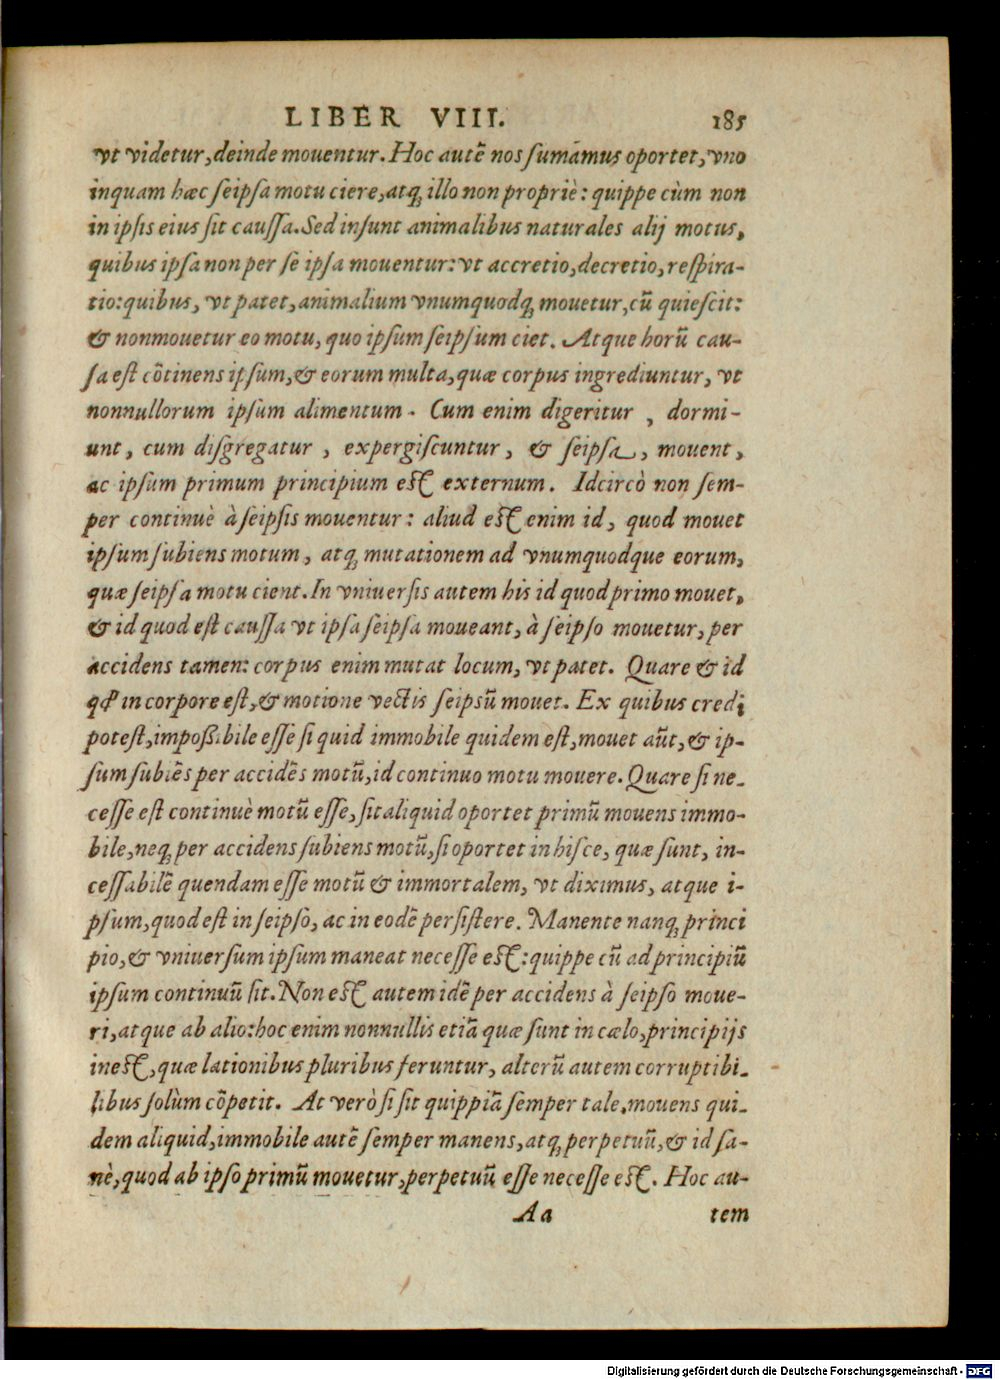 LIBER VIII. 185
vt videtur, deinde mouentur. Hoc autē nos sumámus oportet, vno
inquam hæc seipsa motu ciere, atq; illo non propriè: quippe cùm non
in ipsis eius sit caussa. Sed insunt animalibus naturales alij motus,
quibus ipsa non per se ipsa mouentur: vt accretio, decretio, respira-
tio: quibus, vt patet, animalium vnumquodq; mouetur, cū quiescit:
& non mouetur eo motu, quo ipsum seipsum ciet. Atque horū cau-
sa est cōtinens ipsum, & eorum multa, quæ corpus ingrediuntur, vt
nonnullorum ipsum alimentum. Cum enim digeritur, dormi-
unt, cum disgregatur, expergiscuntur, & seipsa, mouent,
ac ipsum primum principium est externum. Idcircò non sem-
per continuè à seipsis mouentur: aliud est enim id, quod mouet
ipsum subiens motum, atq; mutationem ad vnumquodque eorum,
quæ seipsa motu cient. In vniuersis autem his id quod primo mouet,
& id quod est caussa vt ipsa seipsa moueant, à seipso mouetur, per
accidens tamen: corpus enim mutat locum, vt patet. Quare & id
qđ in corpore est, & motione vectis seipsū mouet. Ex quibus credi
potest, impoßibile esse si quid immobile quidem est, mouet aūt, & ip-
sum subiēs per accidēs motū, id continuo motu mouere. Quare si ne-
cesse est continuè motū esse, sit aliquid oportet primū mouens immo-
bile, neq; per accidens subiens motū, si oportet in hisce, quæ sunt, in-
cessabilē quendam esse motū & immortalem, vt diximus, atque i-
psum, quod est in seipso, ac in eodē persistere. Manente nanq; princi
pio, & vniuersum ipsum maneat necesse est: quippe cū ad principiū
ipsum continuū sit. Non est autem idē per accidens à seipso moue-
ri, atque ab alio: hoc enim nonnullis etiā quæ sunt in cælo, principijs
inest, quæ lationibus pluribus feruntur, alterū autem corruptibi-
libus solùm cōpetit. At verò si sit quippiā semper tale, mouens qui-
dem aliquid, immobile autē semper manens, atq; perpetuū, & id sa-
nè, quod ab ipso primū mouetur, perpetuū esse necesse est. Hoc au-
Aa tem
Digitalisierung gefördert durch die Deutsche Forschungsgemeinschaft - DFG